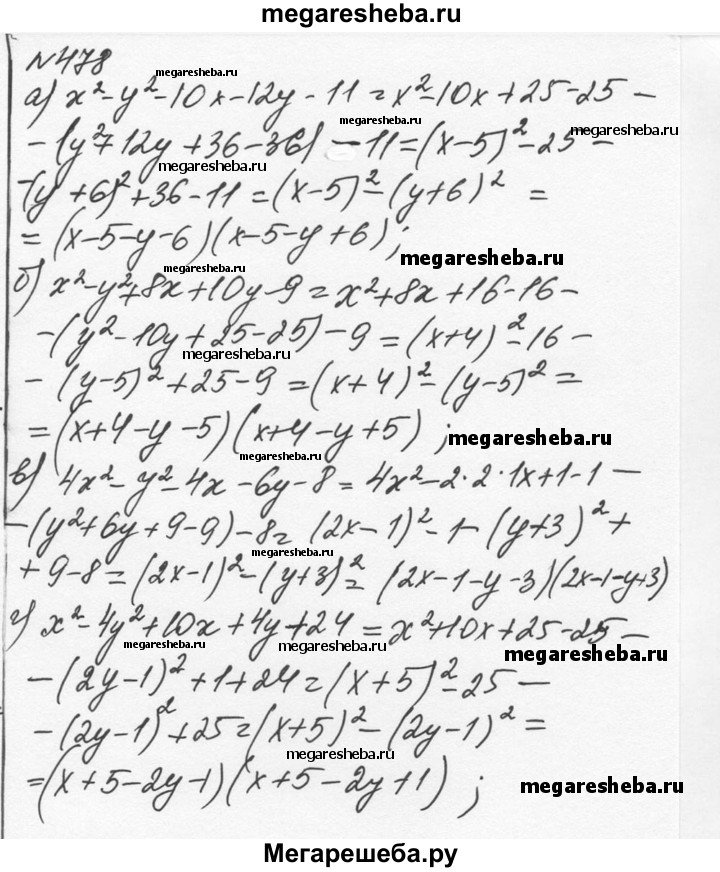 megaresheba.ru
№478
megaresheba.ru
а) x²-y²-10x-12y-11 = x²-10x+25-25 -
-(y²+12y+36-36) -11 = (x-5)²-25 -
megaresheba.ru
megaresheba.ru
-(y+6)²+36-11 = (x-5)²-(y+6)² =
= (x-5-y-6)(x-5-y+6);
megaresheba.ru
megaresheba.ru
б) x²-y²+8x+10y-9 = x²+8x+16-16 -
-(y²-10y+25-25)-9 = (x+4)²-16 -
megaresheba.ru
-(y-5)²+25-9 = (x+4)²-(y-5)² =
= (x+4-y-5)(x+4-y+5);
megaresheba.ru
megaresheba.ru
в) 4x²-y²-4x-6y-8 = 4x²-2·2·1x+1-1 -
-(y²+6y+9-9)-8 = (2x-1)²-1-(y+3)²+
megaresheba.ru
+9-8 = (2x-1)²-(y+3)² = (2x-1-y-3)(2x-1-y+3)
г) x²-4y²+10x+4y+24 = x²+10x+25-25 -
megaresheba.ru
megaresheba.ru
-(2y-1)²+1+24 = (x+5)²-25 -
-(2y-1)²+25 = (x+5)²-(2y-1)² =
megaresheba.ru
= (x+5-2y-1)(x+5-2y+1);
megaresheba.ru
Мегарешеба.ру